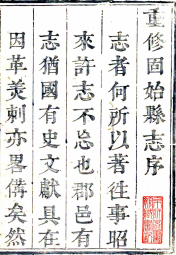 重修固始縣志序
志者何所以著往事昭
來許志不忘也郡邑有
志猶國有史文獻具在
因革美刺亦畧備矣然